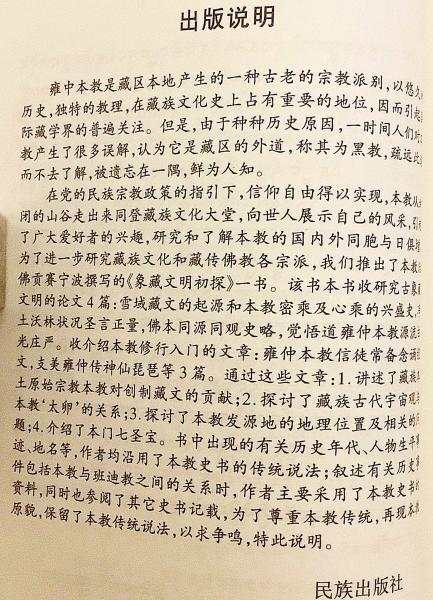 出版说明
雍中本教是藏区本地产生的一种古老的宗教派别,以悠久
历史,独特的教理,在藏族文化史上占有重要的地位,因而引起
际藏学界的普遍关注。但是,由于种种历史原因,一时间人们对
教产生了很多误解,认为它是藏区的外道,称其为黑教,疏远此
而不去了解,被遗忘在一隅,鲜为人知。
在党的民族宗教政策的指引下,信仰自由得以实现,本教从
闭的山谷走出来同登藏族文化大堂,向世人展示自己的风采,引
了广大爱好者的兴趣,研究和了解本教的国内外同胞与日俱
为了进一步研究藏族文化和藏传佛教各宗派,我们推出了本教
佛贡赛宁波撰写的《象藏文明初探》一书。该书本书收研究古象
文明的论文4篇:雪域藏文的起源和本教密乘及心乘的兴盛史,
土沃林状况圣言正量,佛本同源同观史略,觉悟道雍仲本教源流
光庄严。收介绍本教修行入门的文章:雍仲本教信徒常备念诵
文,支美雍仲传神仙琵琶等3篇。通过这些文章:1.讲述了藏族
土原始宗教本教对创制藏文的贡献;2.探讨了藏族古代宇宙观
本教‘太卵’的关系;3.探讨了本教发源地的地理位置及相关的
题;4.介绍了本门七圣宝。书中出现的有关历史年代、人物生平
迹、地名等,作者均沿用了本教史书的传统说法;叙述有关历史
件包括本教与班迪教之间的关系时,作者主要采用了本教史书
资料,同时也参阅了其它史书记载,为了尊重本教传统,再现本教
原貌,保留了本教传统说法,以求争鸣,特此说明。
民族出版社